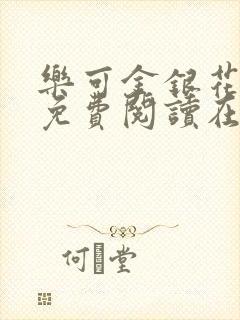 樂可金銀花
免費閱讀在
何堂